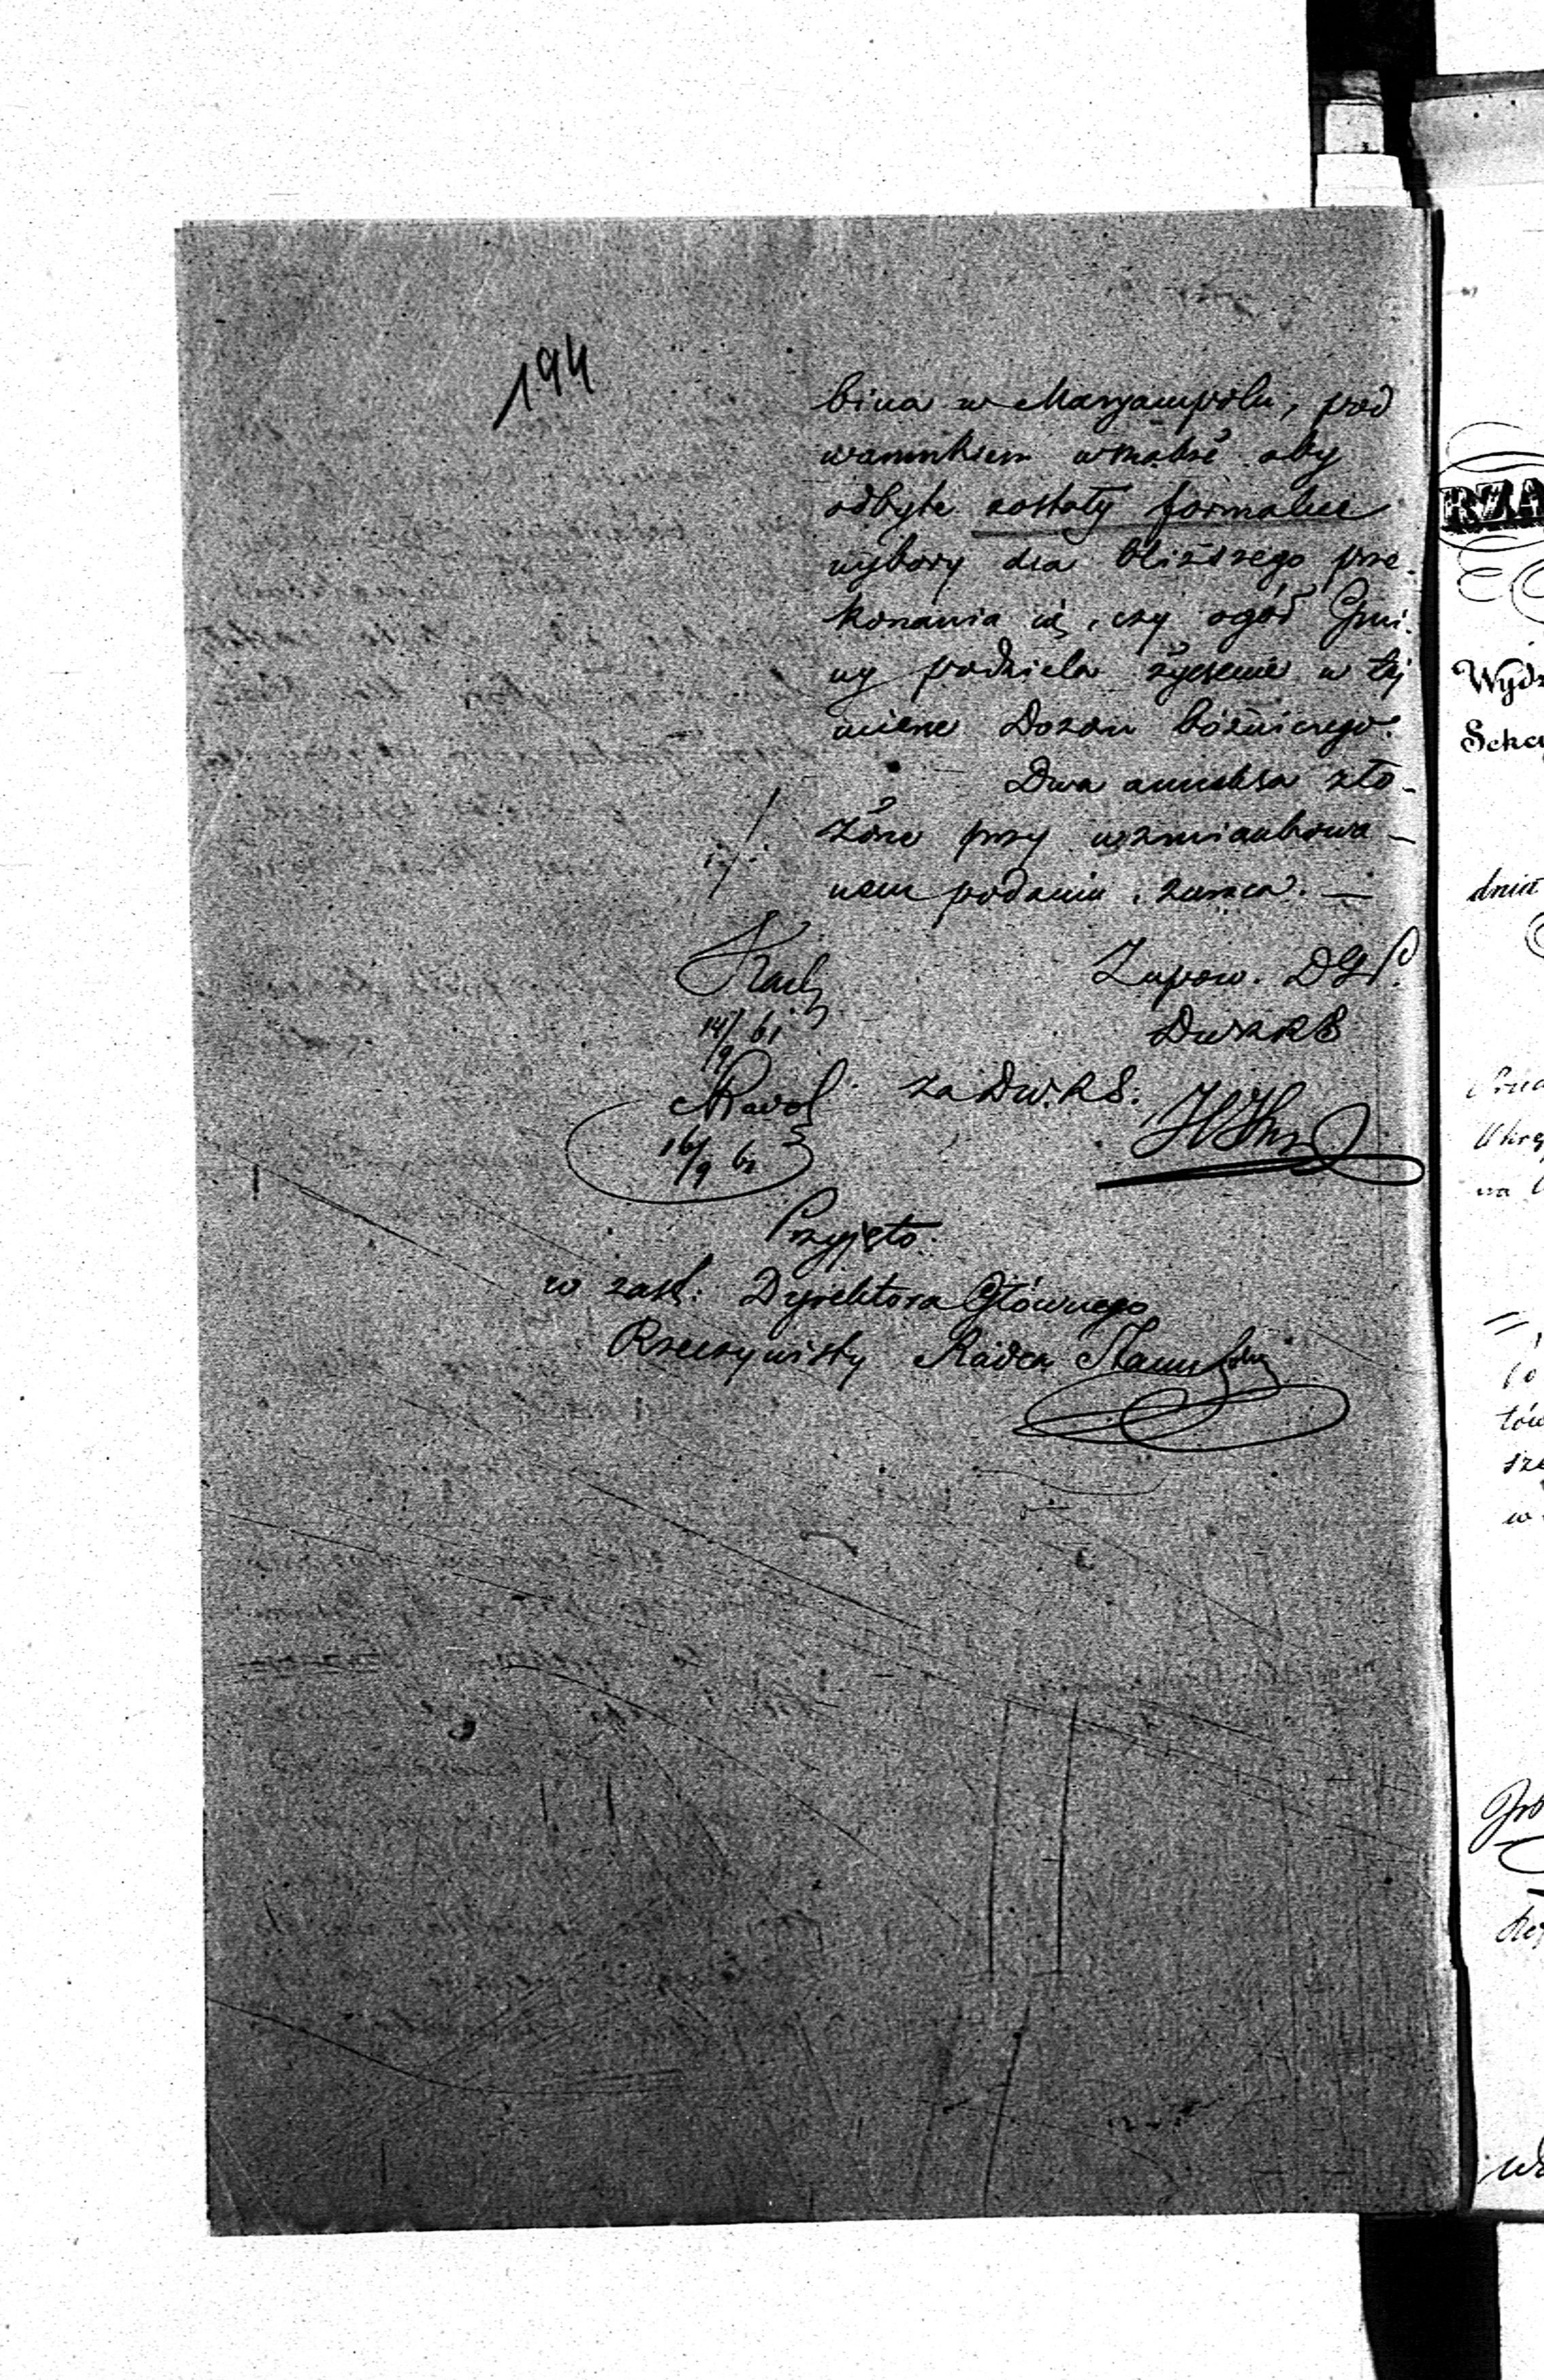 194
bina w Maryampolu, pod
warunkiem wszakże aby
odbyte zostały formalne
wybory dla bliższego prze-
konania się, czy ogół Gmi-
ny podziela życzenie w tej
mierze Dozoru bóżniczego.
Dwa anneksa zło-
żone przy wzmiankowa-
nem podaniu, zwraca. —
Zupow. DGP.
14/9 61
za Dw. KS.
16/9 61
Przyjęto.
w zast. Dyrektora Głównego
Rzeczywisty Radca Stanu
RZĄ
Wydz
Sekcy
dnia
Okrę
na
tów
sze
w